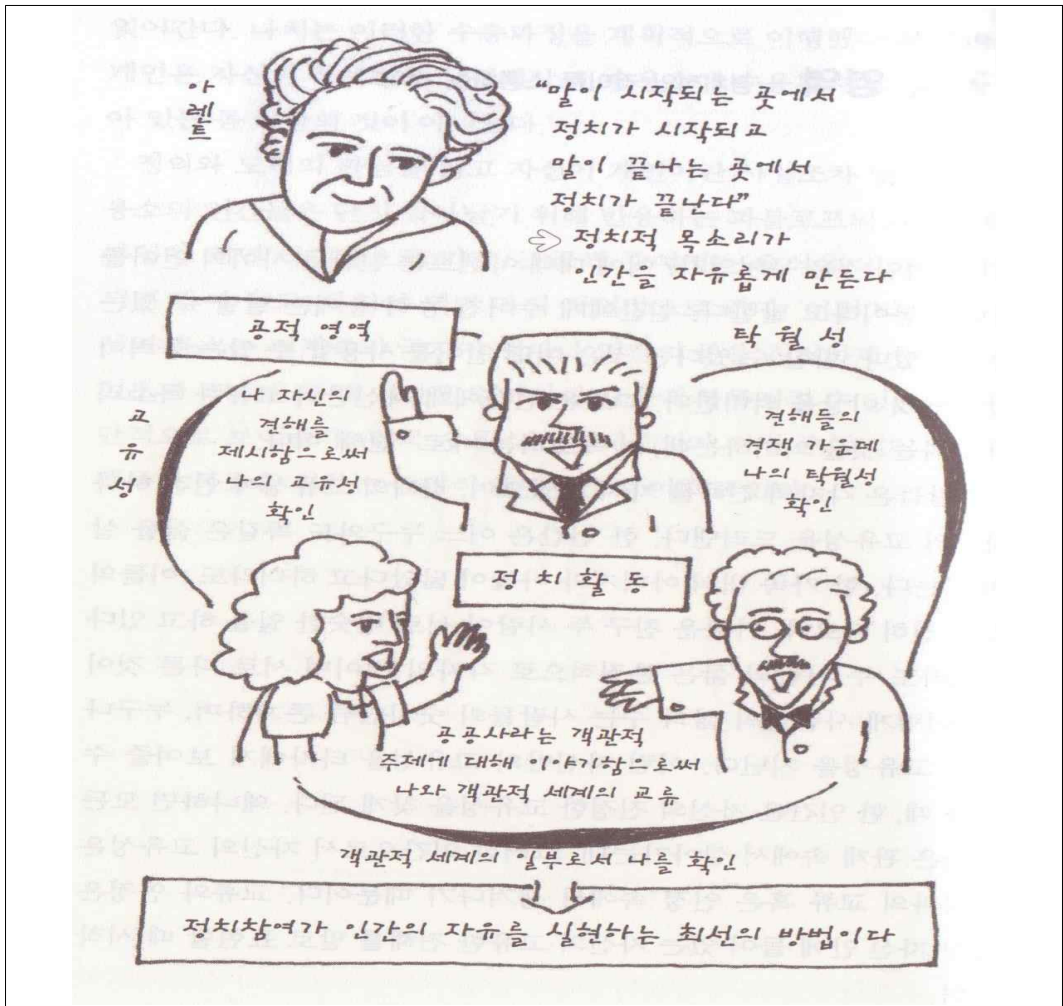 아
렌
트
“말이 시작되는 곳에서
정치가 시작되고
말이 끝나는 곳에서
정치가 끝난다”
정치적 목소리가
인간을 자유롭게 만든다
공적 영역
탁월성
고
유
성
나 자신의
견해를
제시함으로써
나의 고유서
확인
견해들의
경쟁 속에
나의 탁월성
확인
정치활동
공공사라는 객관적
주제에 대해 이야기함으로써
나와 객관적 세계의 교류
객관적 세계의 일부로서 나를 확인
정치참여가 인간의 자유를 실현하는 최선의 방법이다